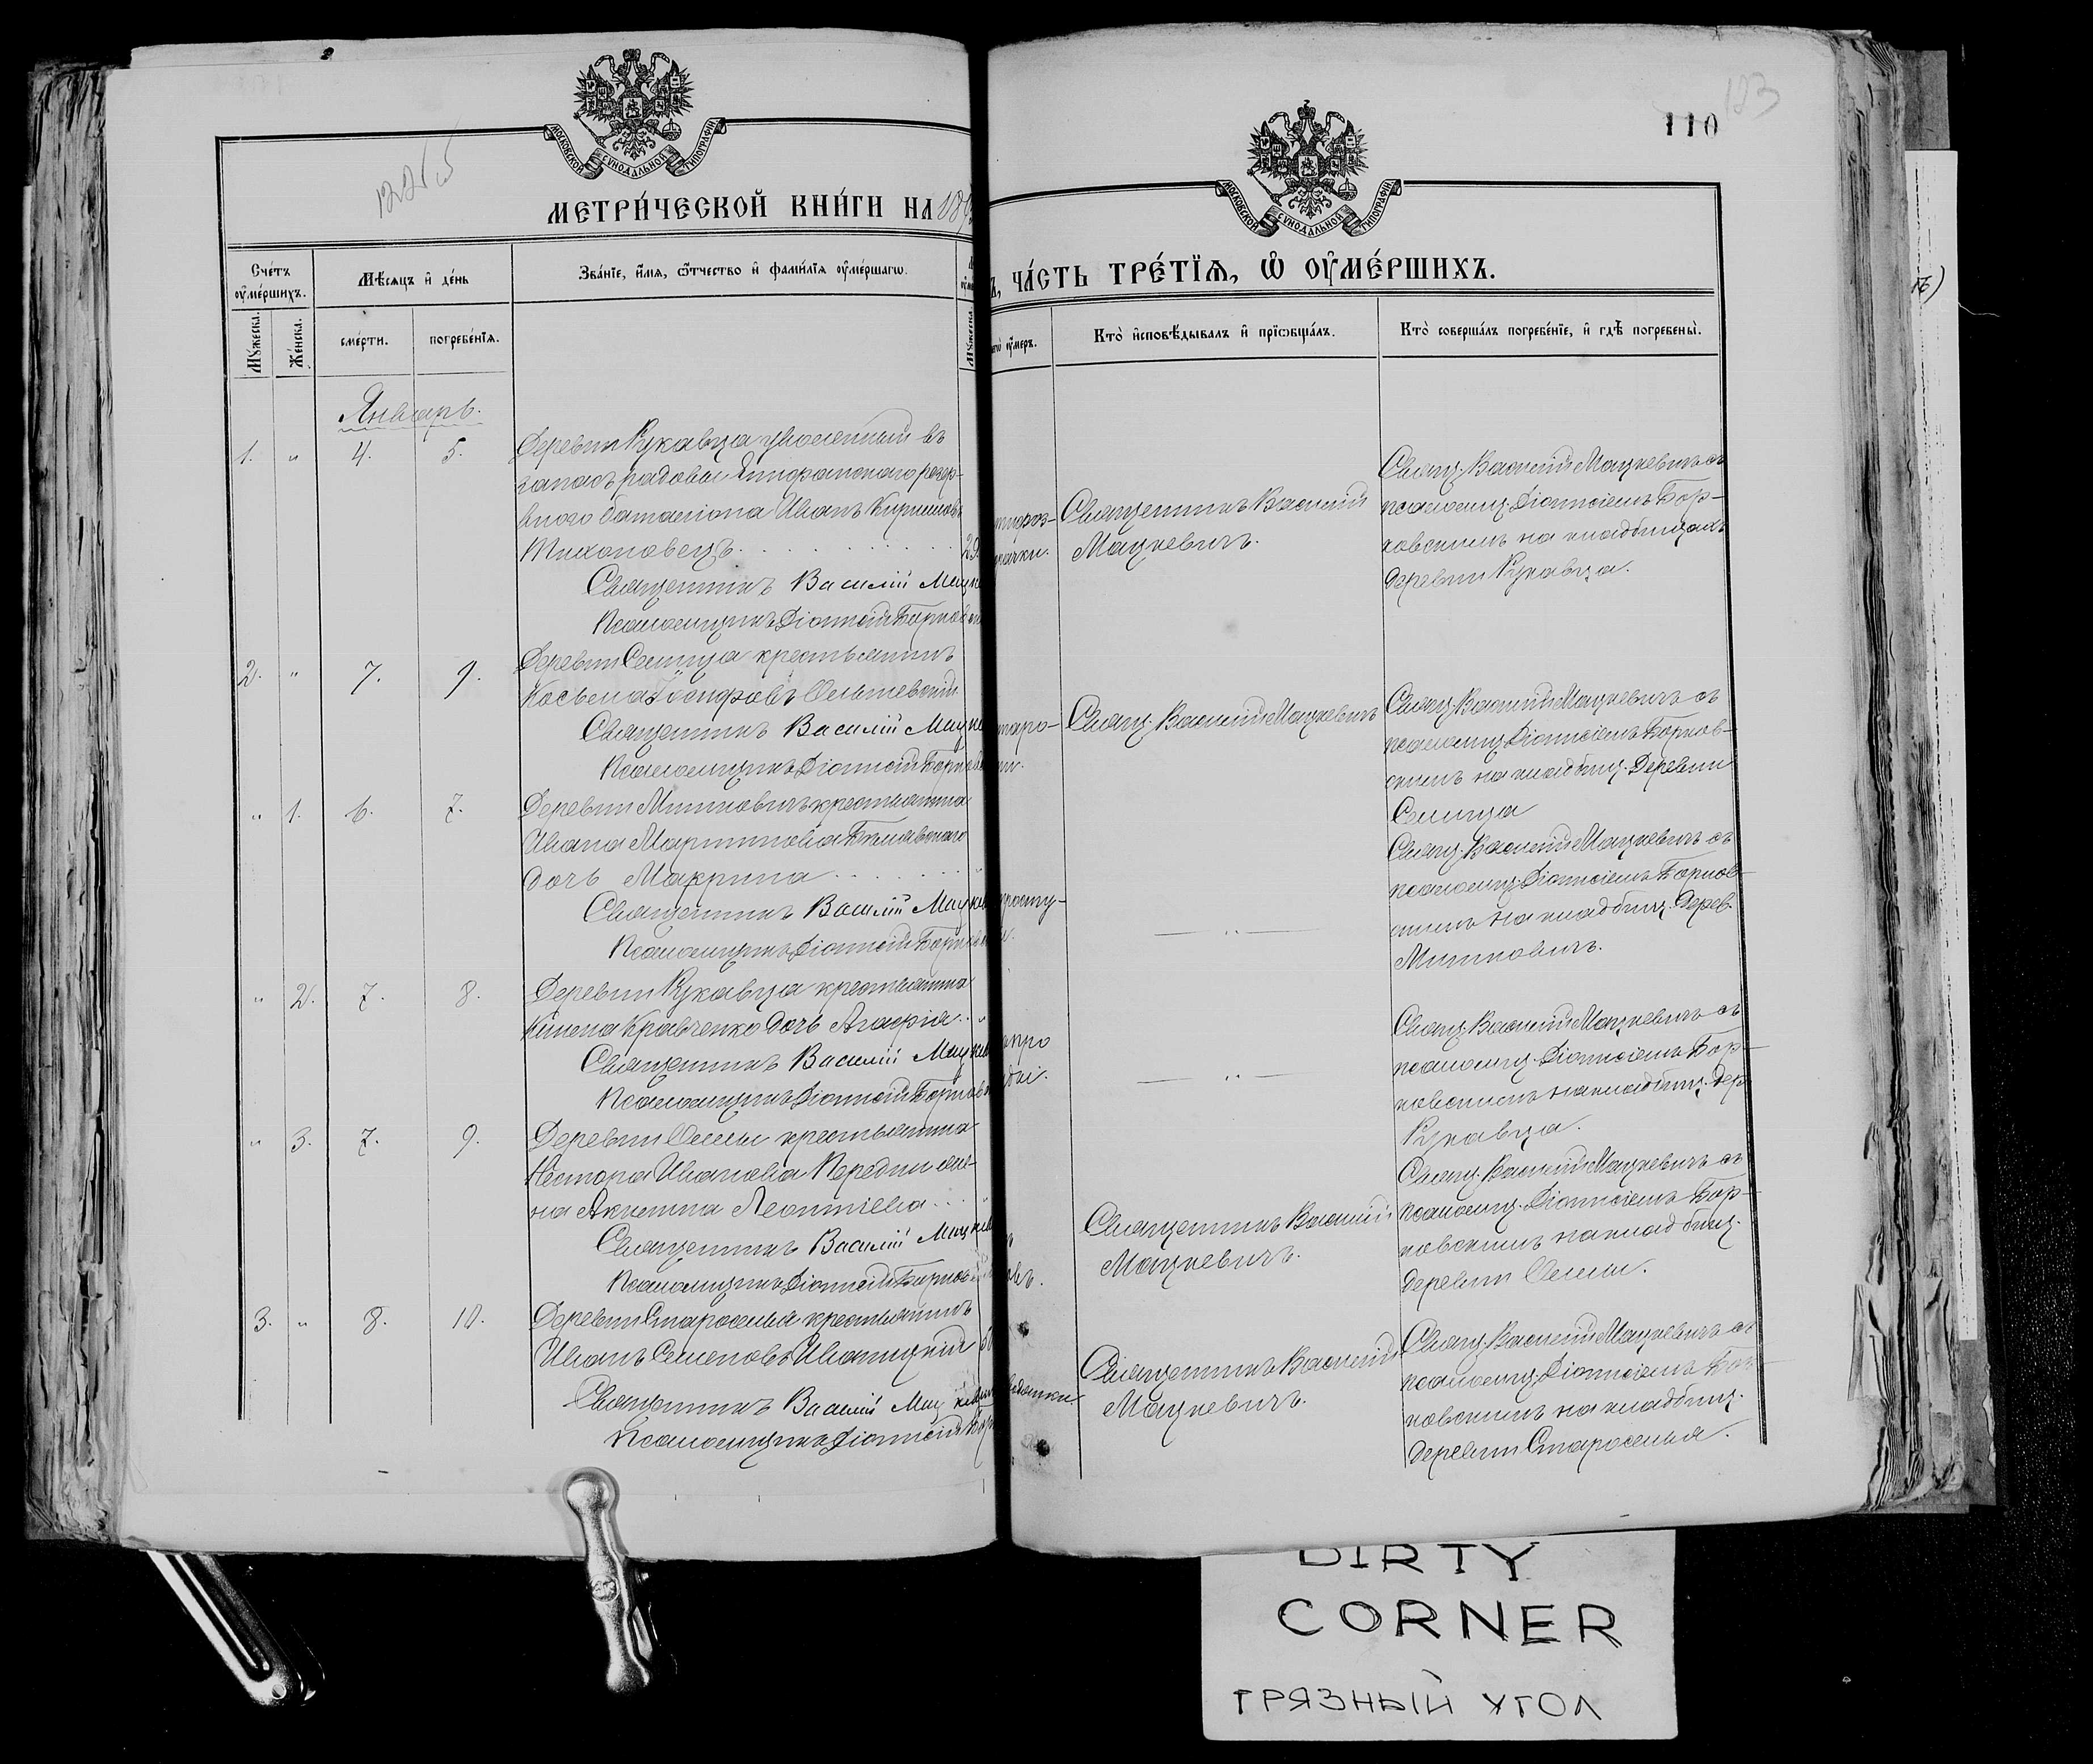 МОСКОВСКОЙ СУНОДАЛЬНОЙ ТИПОГРАФІИ
МЕТРИ́ЧЕСКОЙ КНИ́ГИ НА 189
Сче́тъ оумершихъ.
Мꙋжеска.
Же́нска.
Мѣсяцъ и де́нь
сме́рти.
погребе́нїѧ.
Зва́нїе, и́мѧ, ѻ҆́тчество и҆ фами́лїѧ оу҆ме́ршагѡ.
Январь.
1. " 4. 5. Деревни Рукавца уволенный въ
запасъ рядовый резер-
внаго баталіона Иванъ Кирилловъ
Тихоновецъ 29
Священникъ Василій Мацке
Псаломщикъ Діонисій Борковск
2. " 7. 9. Деревни Селища крестьянинъ
Косьма Іосифовъ Ольшевскій
Священникъ Василій Мацке
Псаломщикъ Діонисій Борков
" 1. 6. 7. Деревни Милковичъ крестьянина
Ивана Мартинова Бѣлявскаго
дочь Макрина
Священникъ Василій Мацкев
Псаломщикъ Діонисій Борковс
" 2. 7. 8. Деревни Рукавца крестьянина
Кравченко дочь Агафія
Священникъ Василій Мацкев
Псаломщикъ Діонисій Борковс
" 3. 7. 9. Деревни крестьянина
Нестора Иванова Передни же-
на Акилина Леонтіева
Священникъ Василій Мацкев
Псаломщикъ Діонисій Борков
3. " 8. 10. Деревни Староселья крестьянинъ
Иванъ Семеновъ Иваницкій
Священникъ Василій Мацкев
Псаломщикъ Діонисій Бор
110
123
МОСКОВСКОЙ СУНОДАЛЬНОЙ ТИПОГРАФІИ
Ъ, ЧА́СТЬ ТРЕ́ТЇѦ, Ѡ҆ ОУ҆МЕ́РШИХЪ.
оу҆́меръ.
Кто̀ и҆сповѣ́дывалъ и҆ прїѡбща́лъ.
Кто̀ соверша́лъ погребе́нїе, и҆ гдѣ̀ погребены̀.
Священникъ Василій
Мацкевичъ.
Свящ. Василій Мацкевичъ съ
псаломщ. Діонисіемъ Бор-
ковскимъ на кладбищахъ
деревни Рукавца.
Свящ. Василій Мацкевичъ
Свящ. Василій Мацкевичъ съ
псаломщ. Діонисіемъ Борков-
скимъ на кладбищ. Деревни
Селища
Свящ. Василій Мацкевичъ съ
псаломщ. Діонисіемъ Борков-
скимъ на кладбищ. Дерев.
Милковичъ.
Свящ. Василій Мацкевичъ съ
псаломщ. Діонисіемъ Бор-
ковскимъ на кладбищ. Дер.
Рукавца.
Священникъ Василій
Мацкевичъ.
Свящ. Василій Мацкевичъ съ
псаломщ. Діонисіемъ Бор-
ковскимъ на кладбищ.
деревни
Священникъ Василій
Мацкевичъ.
Свящ. Василій Мацкевичъ съ
псаломщ. Діонисіемъ Бор-
ковскимъ на кладбищ.
деревни Староселья.
DIRTY
CORNER
ГРЯЗНЫЙ УГОЛ